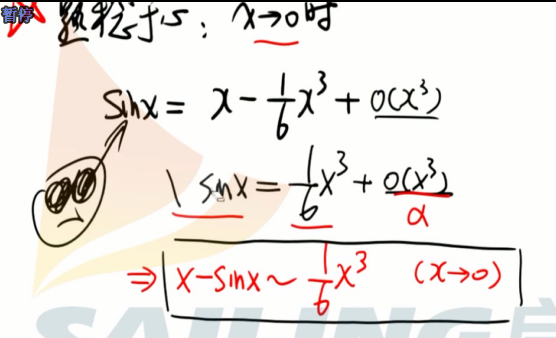 暂停
x→0时
sinx = x - 1/6 x³ + o(x³)
\ sinx = 1/6 x³ + o(x³)
α
⇒ x-sinx ~ 1/6 x³ (x→0)
SAILING